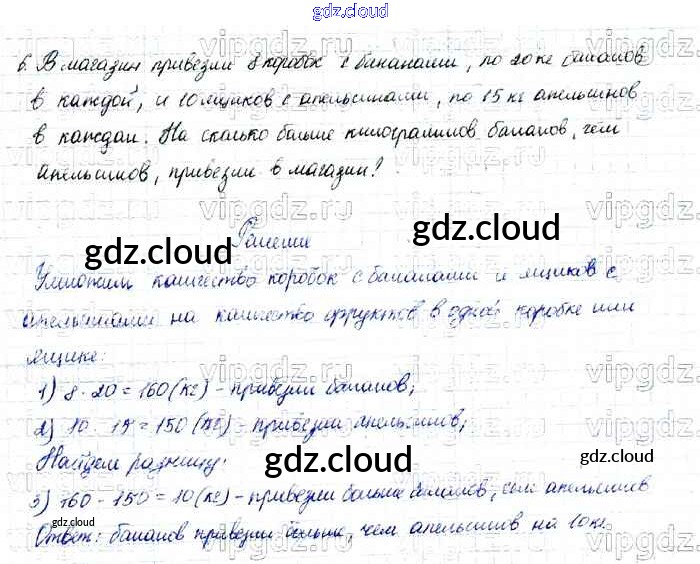 gdz.cloud
6. В магазин привезли 8 коробок с бананами, по 20 кг бананов
в каждой, и 10 ящиков с апельсинами, по 15 кг апельсинов
в каждом. На сколько больше килограммов бананов, чем
апельсинов, привезли в магазин?
Решение
gdz.cloud gdz.cloud
Умножим количество коробок с бананами и ящиков с
апельсинами на количество фруктов в одной коробке или
ящике:
1) 8 · 20 = 160 (кг) - привезли бананов;
2) 10 · 15 = 150 (кг) - привезли апельсинов;
Найдем разницу:
gdz.cloud gdz.cloud
3) 160 - 150 = 10 (кг) - привезли больше бананов, чем апельсинов
gdz.cloud gdz.cloud gdz.cloud
Ответ: бананов привезли больше, чем апельсинов на 10 кг.
vipgdz.ru